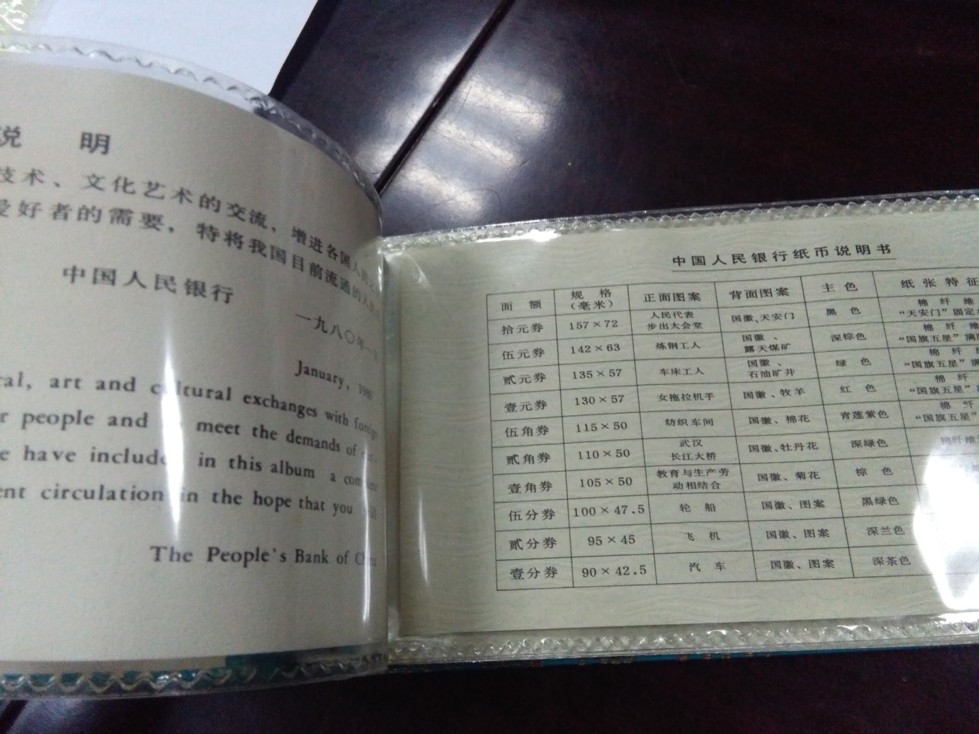 说 明
技术、文化艺术的交流，增进各国人民之
爱好者的需要，特将我国目前流通的人民
中国人民银行
一九八〇年一月
January, 1980
ral, art and cultural exchanges with foreign
r people and meet the demands of
e have include in this album a
ent circulation in the hope that you
The People's Bank of China
中国人民银行纸币说明书
面 额 规 格（毫米） 正面图案 背面图案 主 色 纸 张 特 征
拾元券 157×72 人民代表步出大会堂 国徽、天安门 黑 色 棉 纤 维 “天安门”固定
伍元券 142×63 炼钢工人 国徽、露天煤矿 深棕色 棉 纤 维 “国旗五星”满
贰元券 135×57 车床工人 国徽、石油矿井 绿 色 棉 纤 “国旗五星”满
壹元券 130×57 女拖拉机手 国徽、牧羊 红 色 棉 纤 “国旗五星”
伍角券 115×50 纺织车间 国徽、棉花 青莲紫色 棉 纤 “国旗五星”
贰角券 110×50 武汉长江大桥 国徽、牡丹花 深绿色 棉纤维
壹角券 105×50 教育与生产劳动相结合 国徽、菊花 棕 色
伍分券 100×47.5 轮 船 国徽、图案 黑绿色
贰分券 95×45 飞 机 国徽、图案 深兰色
壹分券 90×42.5 汽 车 国徽、图案 深茶色